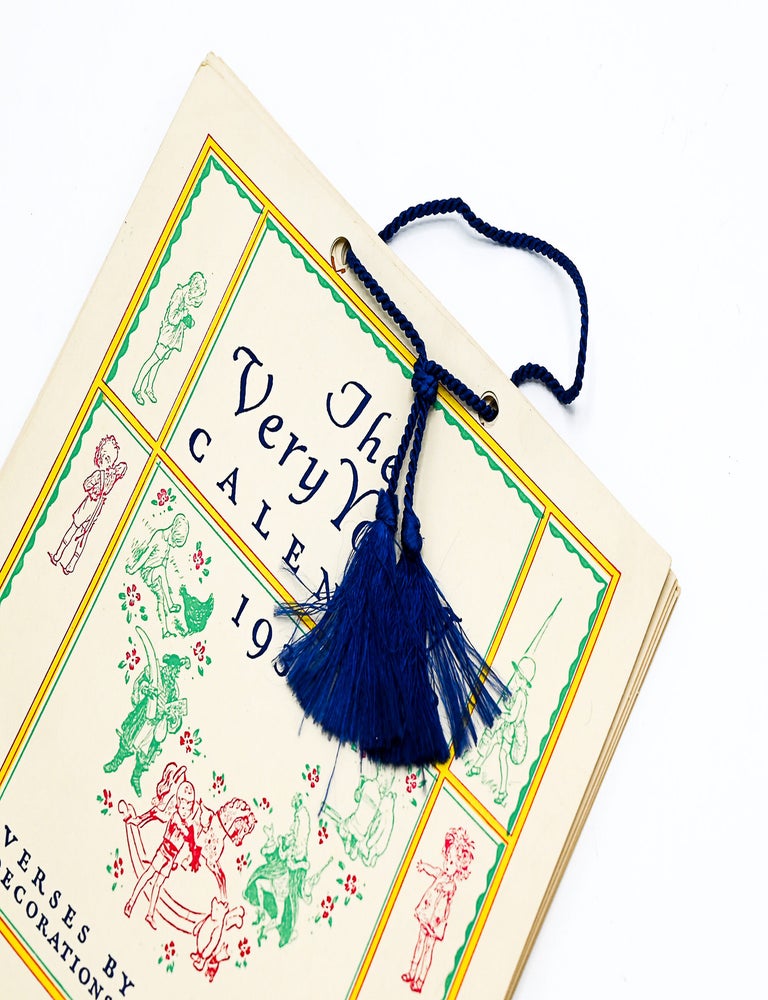 The
Very Yo
CALEN
19
VERSES BY
DECORATIONS